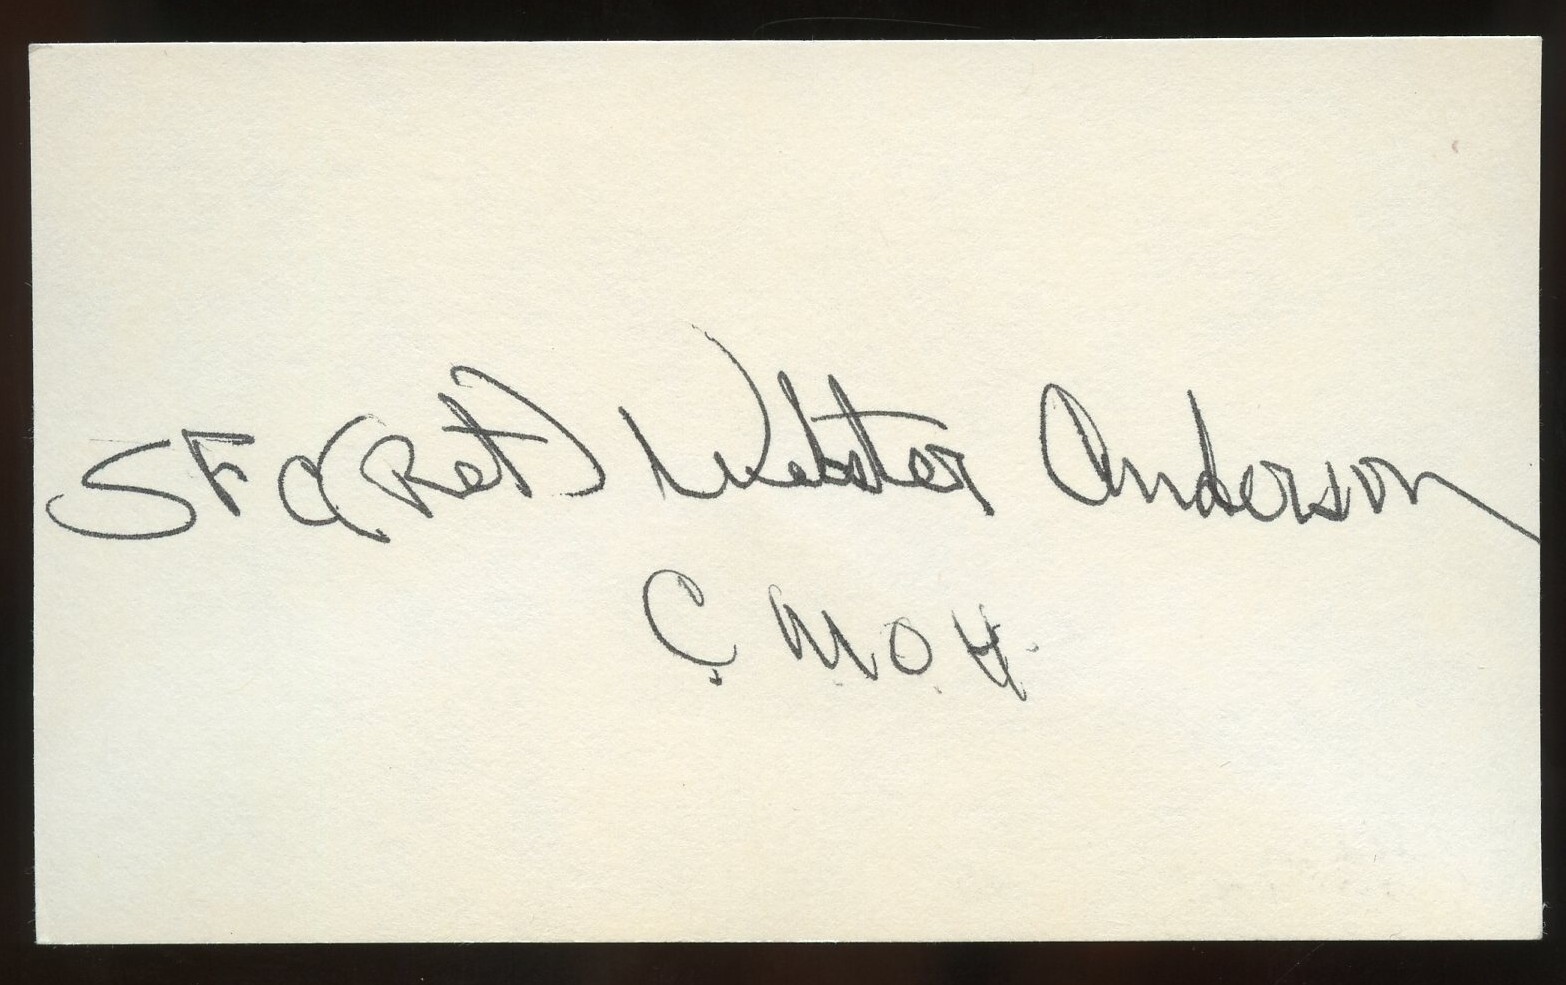 SFC (Ret) Webster Anderson
C. M. O. H.